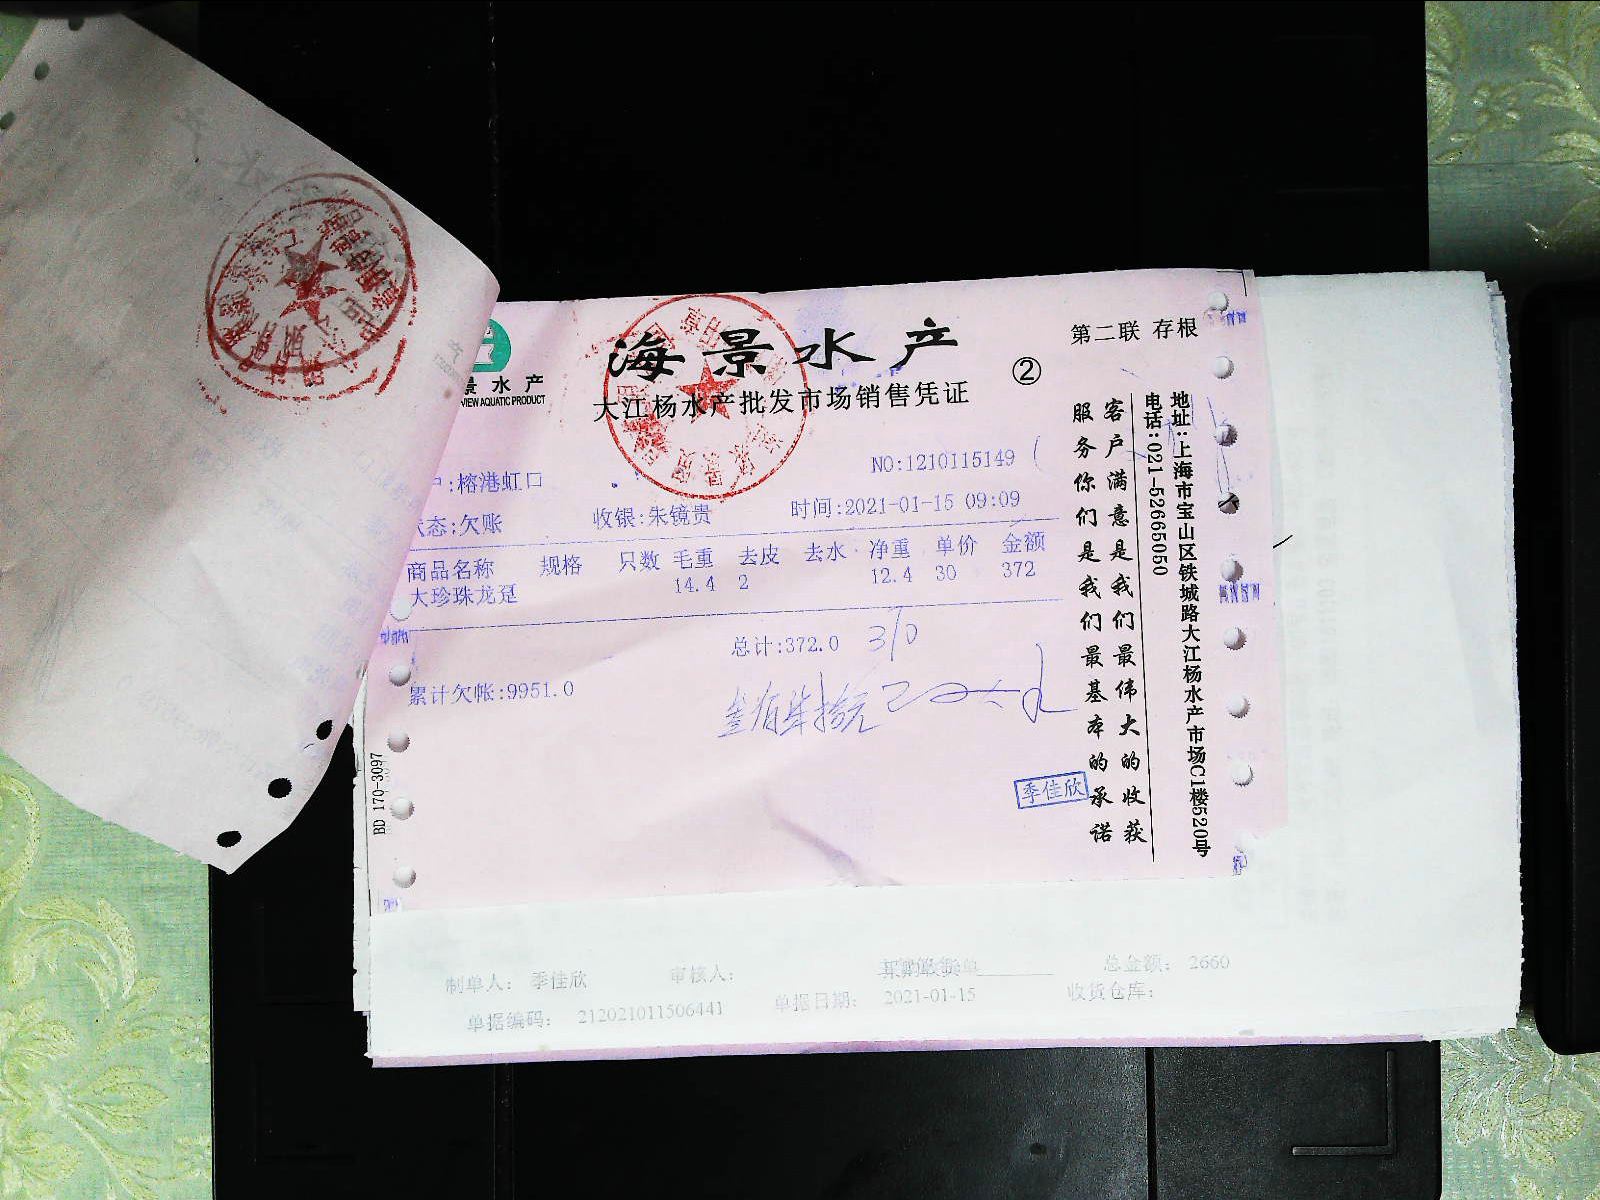 海景水产
②
第二联 存根
景水产
VIEW AQUATIC PRODUCT
大江杨水产批发市场销售凭证
NO:1210115149
户:榕港虹口
状态:欠账 收银:朱镜贵 时间:2021-01-15 09:09
商品名称 规格 只数 毛重 去皮 去水 净重 单价 金额
大珍珠龙趸 14.4 2 12.4 30 372
总计:372.0 310
累计欠帐:9951.0
季佳欣
客户满意是我们最伟大的收获
服务你们是我们最基本的承诺
地址:上海市宝山区铁城路大江杨水产市场C1楼520号
电话:021-52665050
制单人: 季佳欣 审核人: 总金额: 2660
单据编码: 212021011506441 单据日期: 2021-01-15 收货仓库: